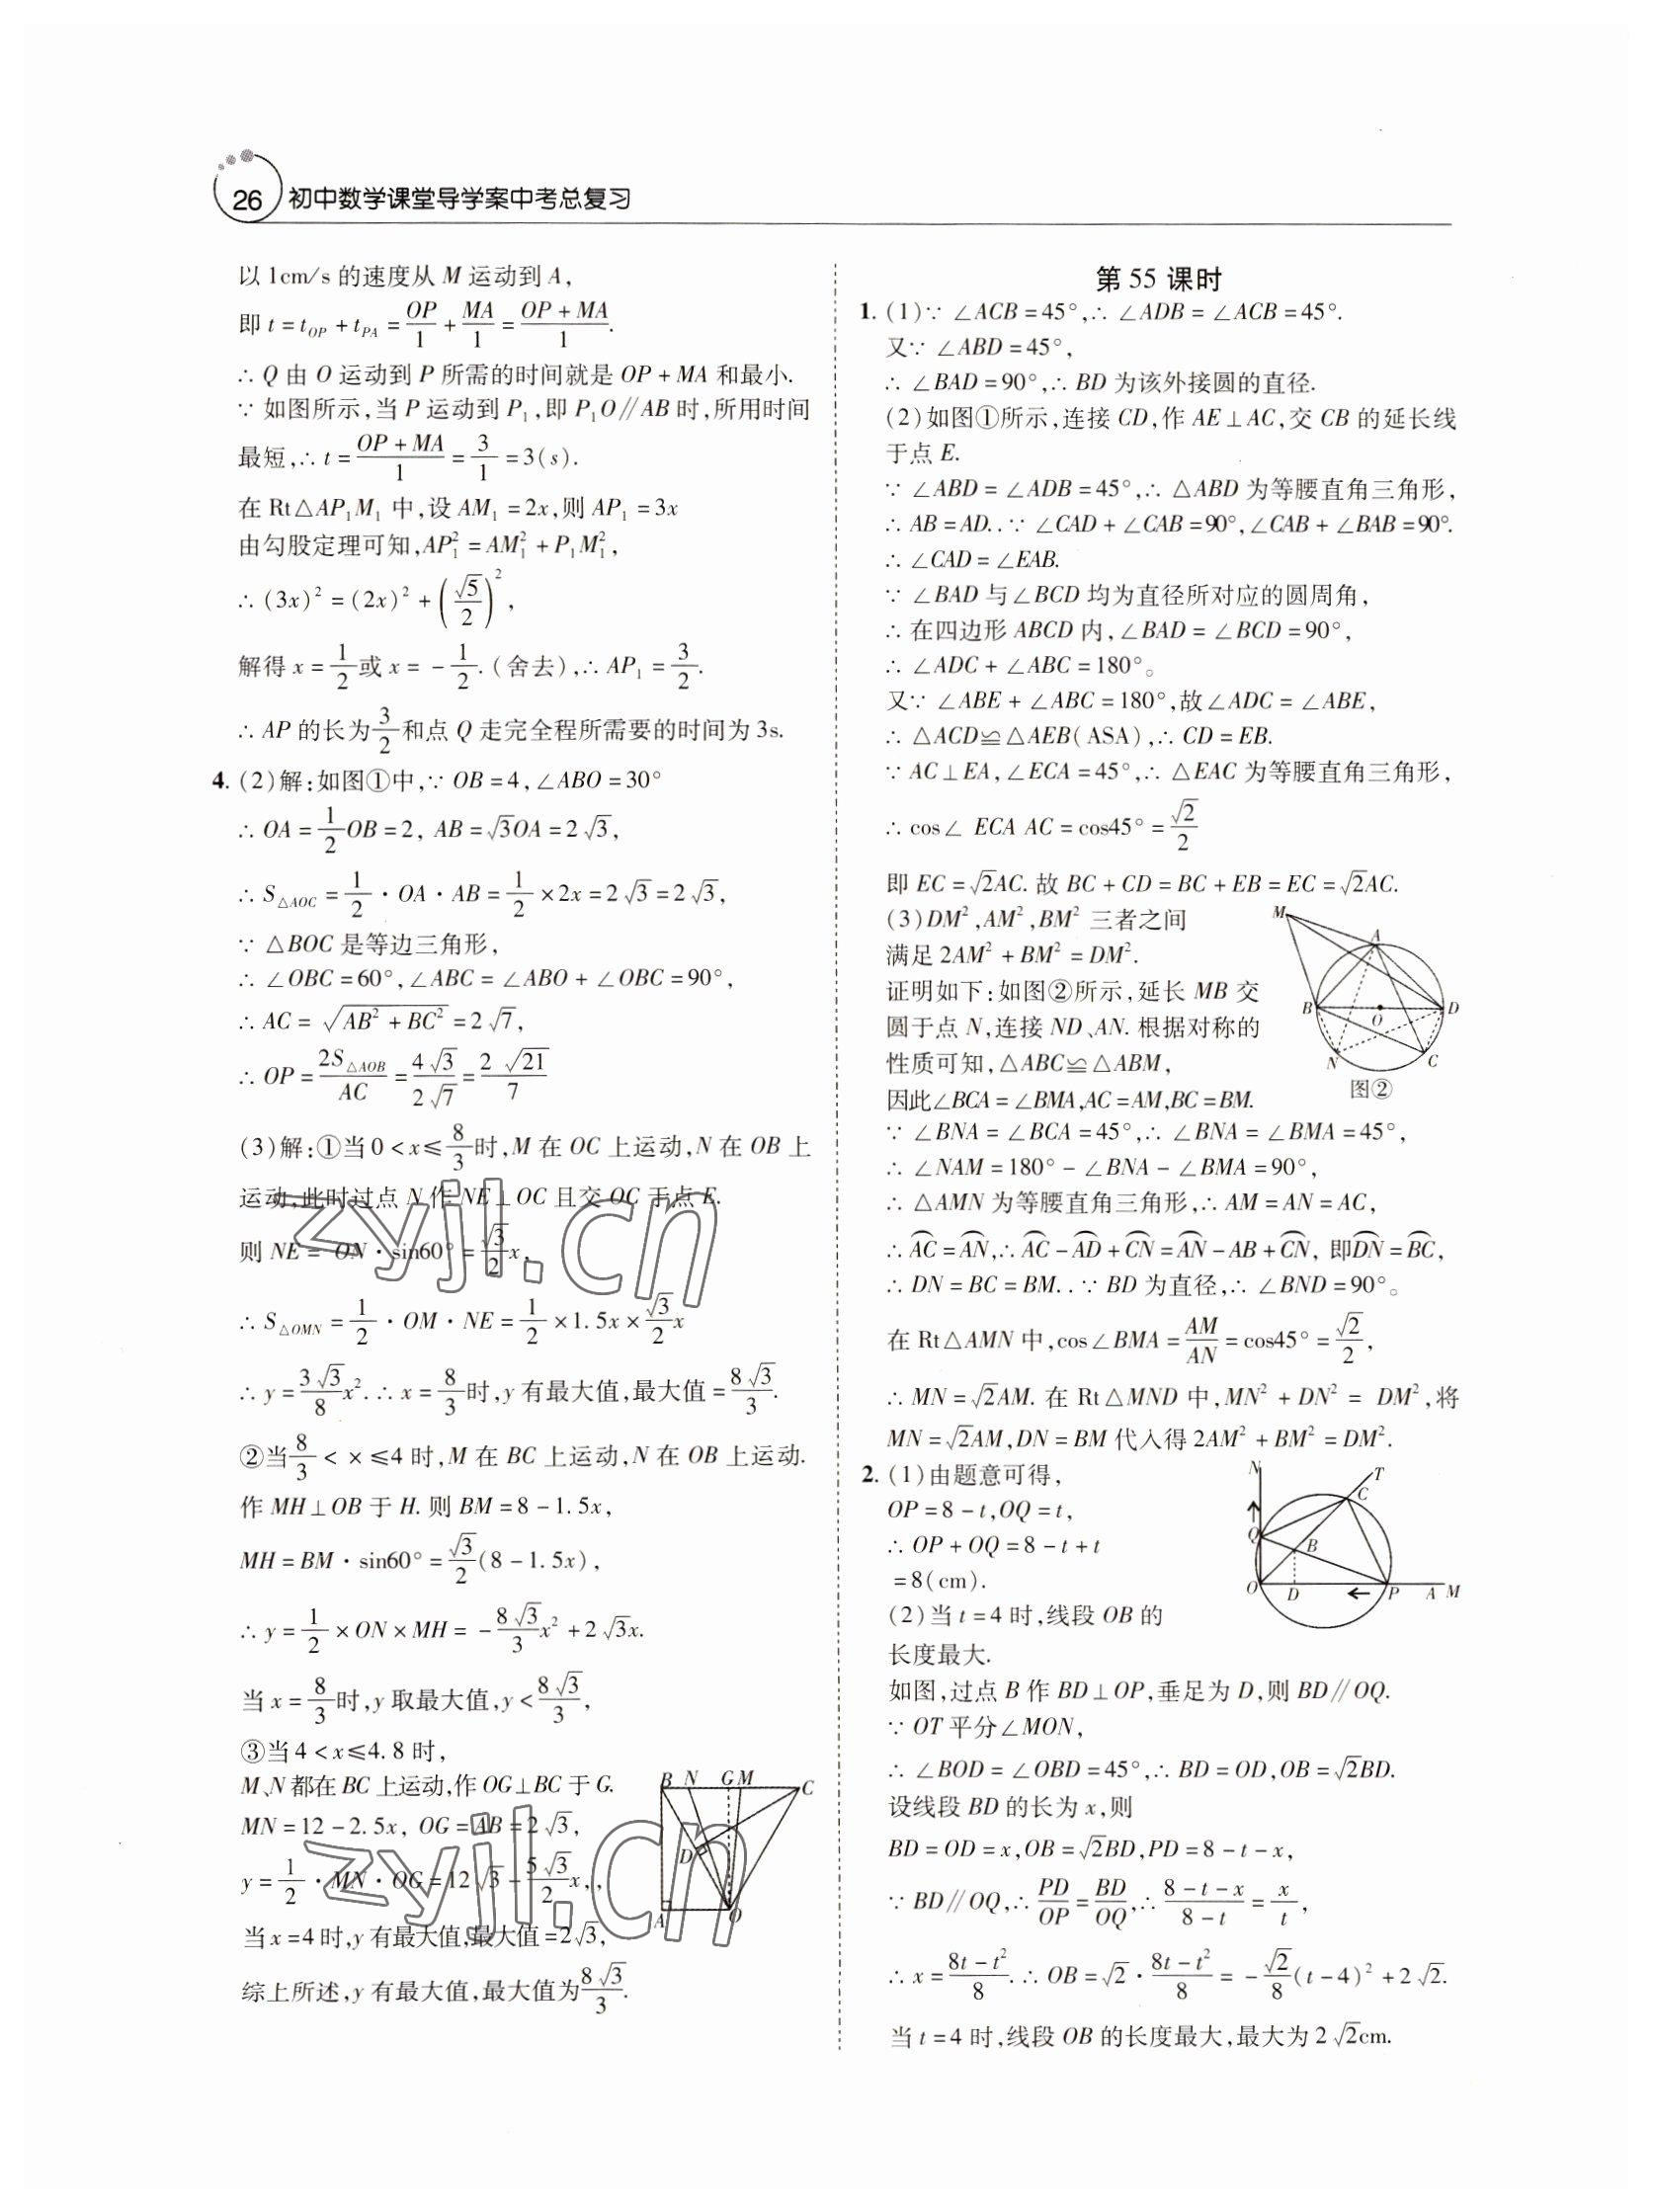 26 初中数学课堂导学案中考总复习
以1cm/s 的速度从 M 运动到 A,
即 t = t_{OP} + t_{PA} = OP/1 + MA/1 = (OP + MA)/1.
∴ Q 由 O 运动到 P 所需的时间就是 OP + MA 和最小.
∵ 如图所示,当 P 运动到 P₁,即 P₁O∥AB 时,所用时间
最短,∴ t = (OP + MA)/1 = 3/1 = 3(s).
在 Rt△AP₁M₁ 中,设 AM₁ = 2x,则 AP₁ = 3x
由勾股定理可知,AP₁² = AM₁² + P₁M₁²,
∴ (3x)² = (2x)² + (√5/2)²,
解得 x = 1/2 或 x = -1/2.(舍去),∴ AP₁ = 3/2.
∴ AP 的长为 3/2 和点 Q 走完全程所需要的时间为 3s.
4. (2)解:如图①中,∵ OB = 4,∠ABO = 30°
∴ OA = 1/2 OB = 2, AB = √3OA = 2√3,
∴ S△AOC = 1/2 · OA · AB = 1/2 × 2x = 2√3 = 2√3,
∵ △BOC 是等边三角形,
∴ ∠OBC = 60°,∠ABC = ∠ABO + ∠OBC = 90°,
∴ AC = √(AB² + BC²) = 2√7,
∴ OP = 2S△AOB/AC = 4√3/2√7 = 2√21/7
(3)解:①当 0 < x ≤ 8/3 时,M 在 OC 上运动,N 在 OB 上
运动,此时过点 N 作 NE⊥OC 且交 OC 于点 E.
则 NE = ON · sin60° = √3/2 x,
∴ S△OMN = 1/2 · OM · NE = 1/2 × 1.5x × √3/2 x
∴ y = 3√3/8 x². ∴ x = 8/3 时,y 有最大值,最大值 = 8√3/3.
②当 8/3 < × ≤ 4 时,M 在 BC 上运动,N 在 OB 上运动.
作 MH⊥OB 于 H. 则 BM = 8 - 1.5x,
MH = BM · sin60° = √3/2 (8 - 1.5x),
∴ y = 1/2 × ON × MH = -8√3/3 x² + 2√3x.
当 x = 8/3 时,y 取最大值,y < 8√3/3,
③当 4 < x ≤ 4.8 时,
M、N 都在 BC 上运动,作 OG⊥BC 于 G.
MN = 12 - 2.5x, OG = AB = 2√3,
y = 1/2 · MN · OG = 12√3 - 5√3/2 x,,
当 x = 4 时,y 有最大值,最大值 = 2√3,
综上所述,y 有最大值,最大值为 8√3/3.
B N G M C
D
A O
第 55 课时
1. (1)∵ ∠ACB = 45°,∴ ∠ADB = ∠ACB = 45°.
又∵ ∠ABD = 45°,
∴ ∠BAD = 90°,∴ BD 为该外接圆的直径.
(2)如图①所示,连接 CD,作 AE⊥AC,交 CB 的延长线
于点 E.
∵ ∠ABD = ∠ADB = 45°,∴ △ABD 为等腰直角三角形,
∴ AB = AD..∵ ∠CAD + ∠CAB = 90°,∠CAB + ∠BAB = 90°.
∴ ∠CAD = ∠EAB.
∵ ∠BAD 与∠BCD 均为直径所对应的圆周角,
∴ 在四边形 ABCD 内,∠BAD = ∠BCD = 90°,
∴ ∠ADC + ∠ABC = 180°。
又∵ ∠ABE + ∠ABC = 180°,故∠ADC = ∠ABE,
∴ △ACD≌△AEB(ASA),∴ CD = EB.
∵ AC⊥EA,∠ECA = 45°,∴ △EAC 为等腰直角三角形,
∴ cos∠ ECA AC = cos45° = √2/2
即 EC = √2AC. 故 BC + CD = BC + EB = EC = √2AC.
(3)DM²,AM²,BM² 三者之间
满足 2AM² + BM² = DM².
证明如下:如图②所示,延长 MB 交
圆于点 N,连接 ND、AN. 根据对称的
性质可知,△ABC≌△ABM,
因此∠BCA = ∠BMA,AC = AM,BC = BM.
M A B O D N C
图②
∵ ∠BNA = ∠BCA = 45°,∴ ∠BNA = ∠BMA = 45°,
∴ ∠NAM = 180° - ∠BNA - ∠BMA = 90°,
∴ △AMN 为等腰直角三角形,∴ AM = AN = AC,
∴ ⌒AC = ⌒AN,∴ ⌒AC - ⌒AD + ⌒CN = ⌒AN - AB + ⌒CN, 即⌒DN = ⌒BC,
∴ DN = BC = BM..∵ BD 为直径,∴ ∠BND = 90°。
在 Rt△AMN 中,cos∠BMA = AM/AN = cos45° = √2/2,
∴ MN = √2AM. 在 Rt△MND 中,MN² + DN² = DM²,将
MN = √2AM,DN = BM 代入得 2AM² + BM² = DM².
2. (1)由题意可得,
OP = 8 - t,OQ = t,
∴ OP + OQ = 8 - t + t
= 8(cm).
(2)当 t = 4 时,线段 OB 的
长度最大.
N T C Q B O D P A M
如图,过点 B 作 BD⊥OP,垂足为 D,则 BD∥OQ.
∵ OT 平分∠MON,
∴ ∠BOD = ∠OBD = 45°,∴ BD = OD,OB = √2BD.
设线段 BD 的长为 x,则
BD = OD = x,OB = √2BD,PD = 8 - t - x,
∵ BD∥OQ,∴ PD/OP = BD/OQ,∴ (8 - t - x)/(8 - t) = x/t,
∴ x = (8t - t²)/8. ∴ OB = √2 · (8t - t²)/8 = -√2/8 (t - 4)² + 2√2.
当 t = 4 时,线段 OB 的长度最大,最大为 2√2cm.
zyjl.cn
zyjl.cn